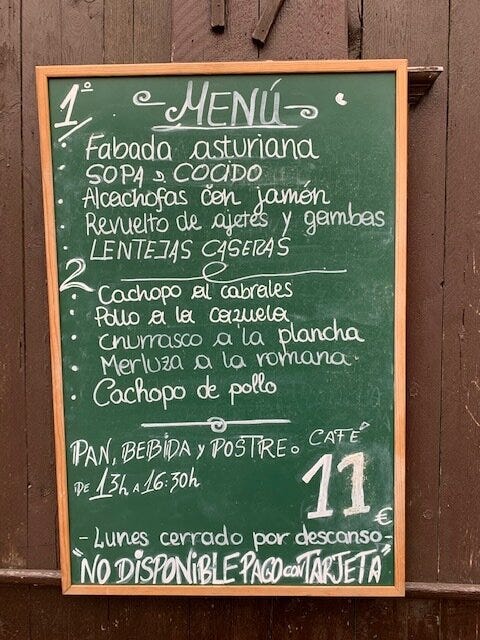 MENÚ
1º
Fabada asturiana
SOPA D COCIDO
Alcachofas con jamón
Revuelto de ajetes y gambas
LENTEJAS CASERAS
2
Cachopo al cabrales
Pollo a la cazuela
churrasco a la plancha
Merluza a la romana
Cachopo de pollo
PAN, BEBIDA y POSTRE o CAFÉ
DE 13h A 16:30h
11 €
- Lunes cerrado por descanso -
"NO DISPONIBLE PAGO con TARJETA"